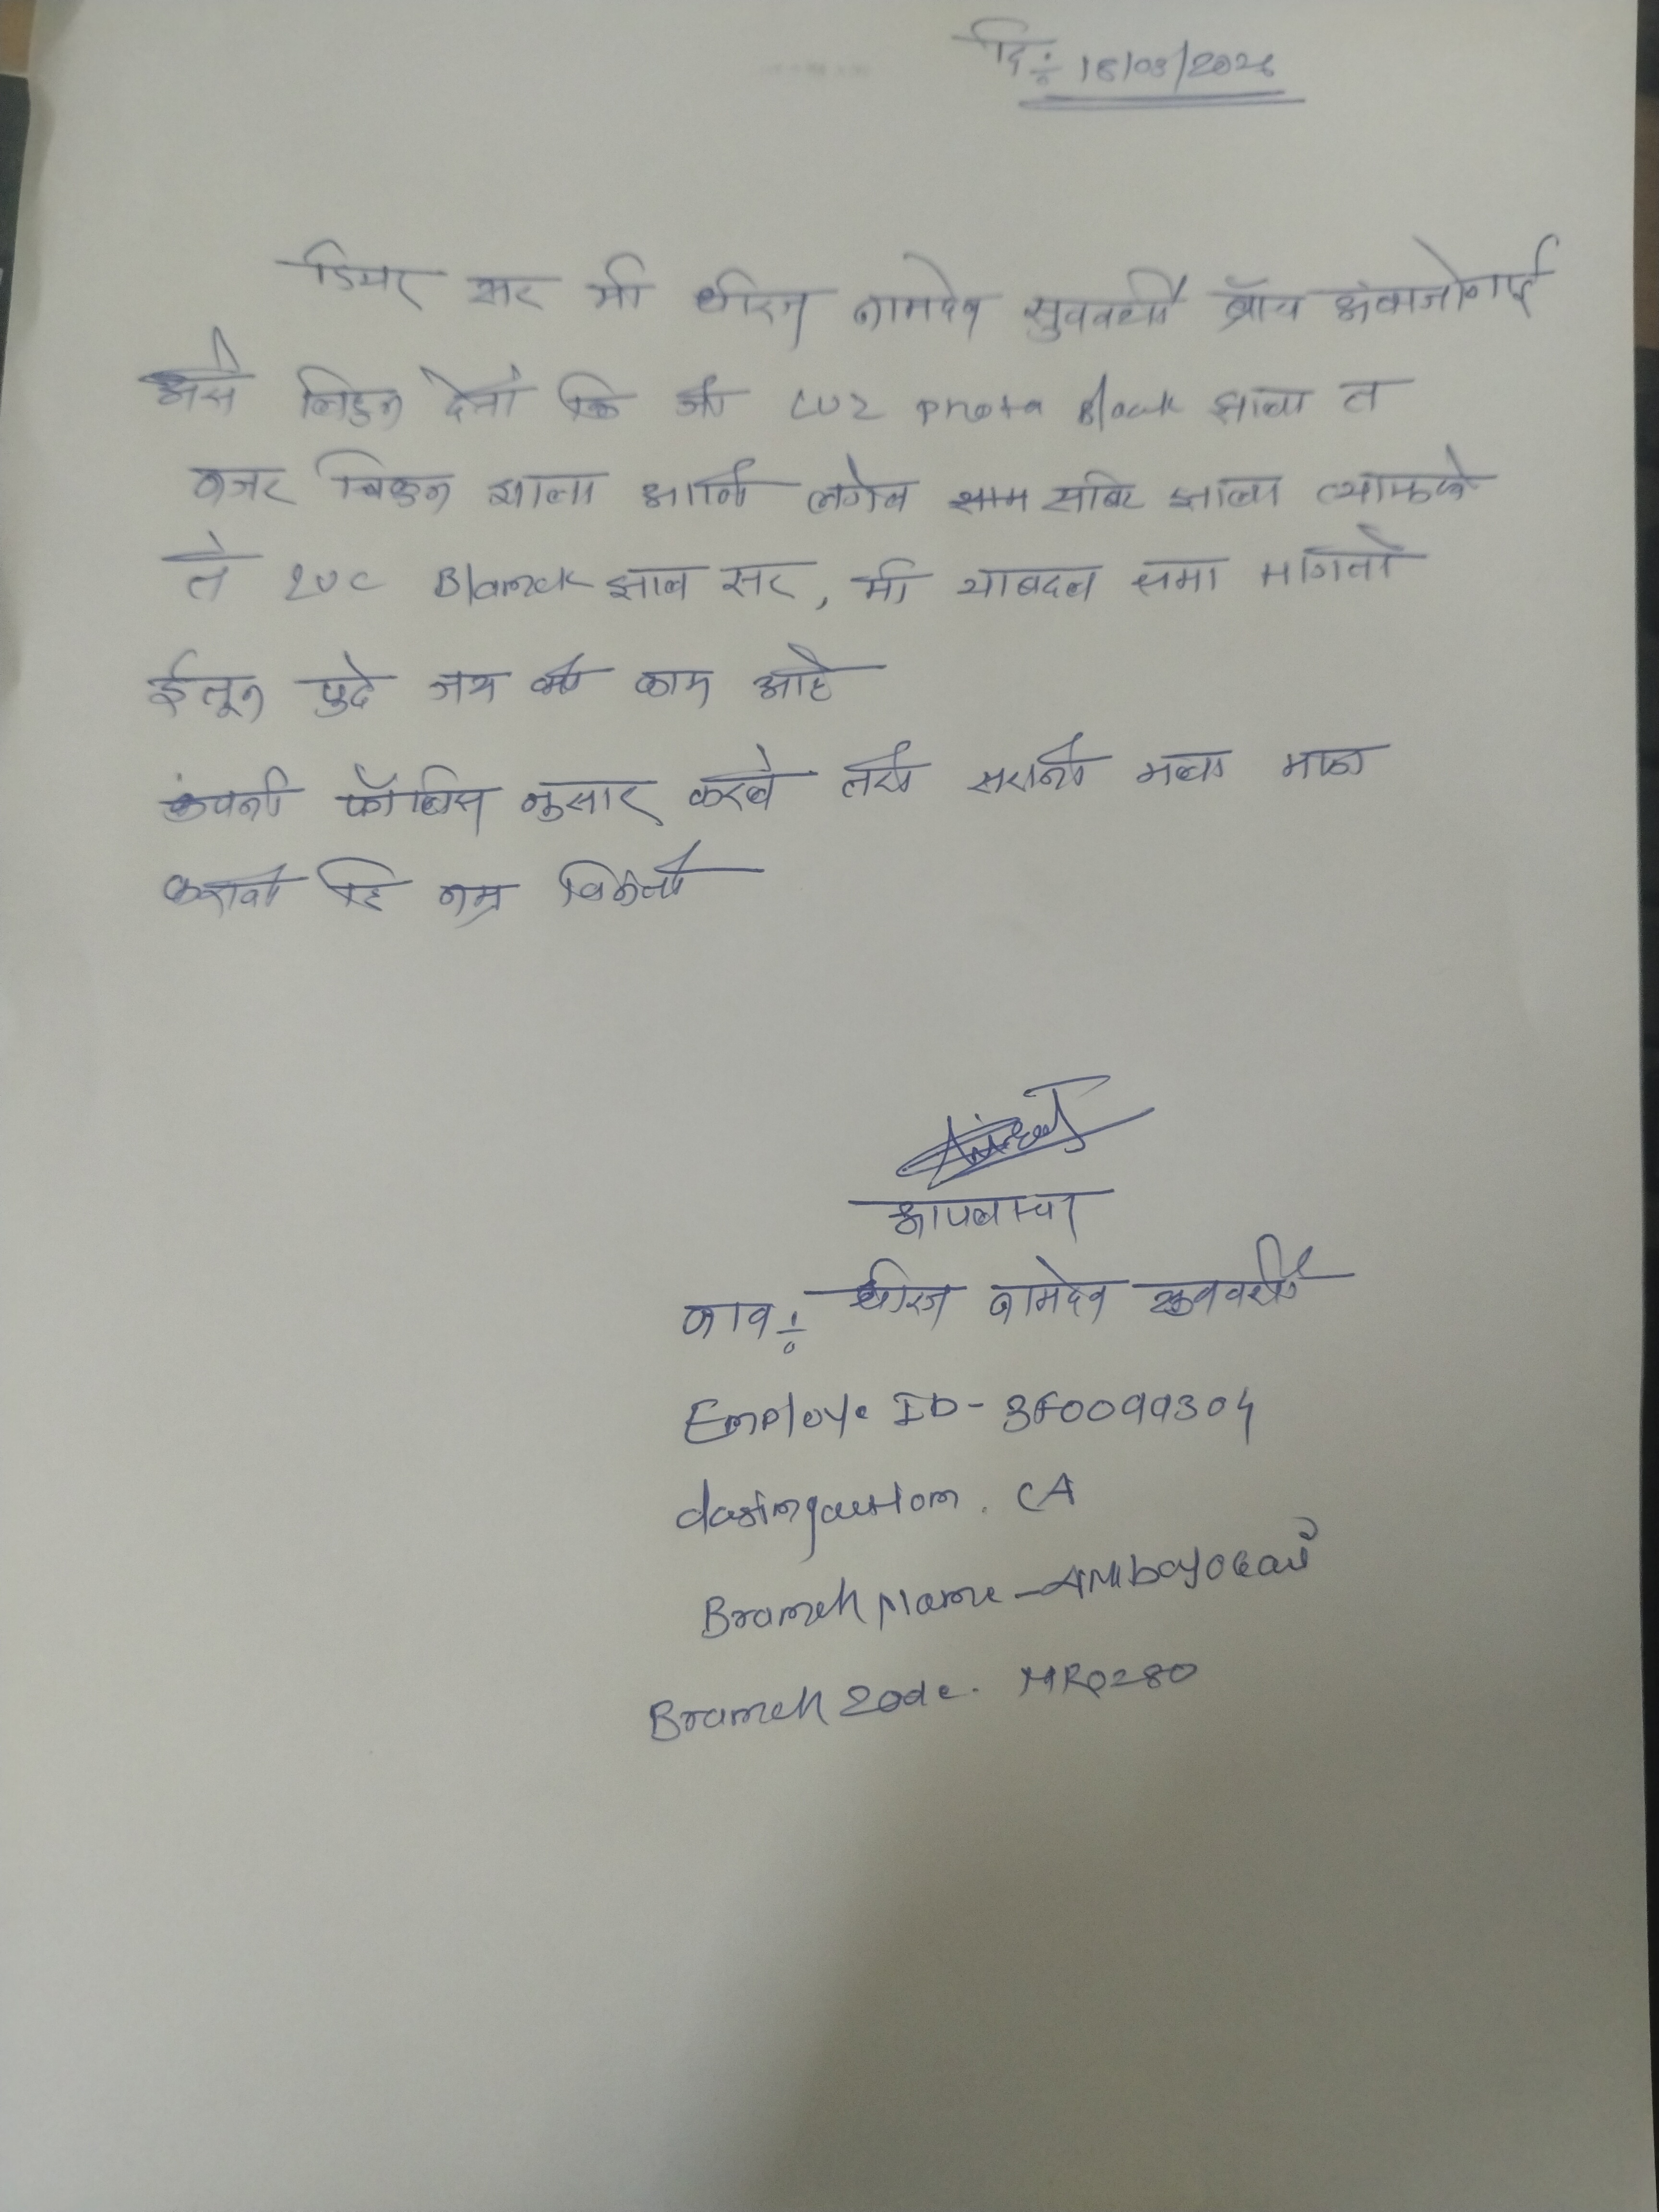 दि÷ 18/03/2026
डियर सर मी धीरज नामदेव सुववर्शी ब्रॉच अंबाजोगाई
असे लिहुन देतो कि जी LUZ Photo Black झाला त
नजर चिकुन झाला आनि लगेच शाम साबिर झाला त्यामळे
ते LUC Blanck झाल सर, मी याबदल क्षमा मागितो
ईतून पुढे जय की काम आहे
कंपनी पॉलिस नुसार करले तरी सरानी मला माफ
करावी हि नम्र विनंती
आपलाच
नाव÷ धीरज नामदेव सुववर्शी
Employe ID- 3F0099304
dasingaustion. CA
Branch Name - AMbajogai
Branch Code. MR0280